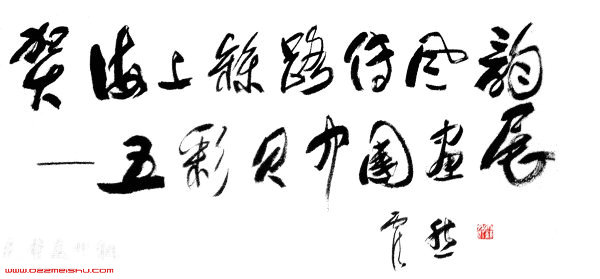 贺海上丝路传风韵
—五彩贝中國画展
www.022meishu.com